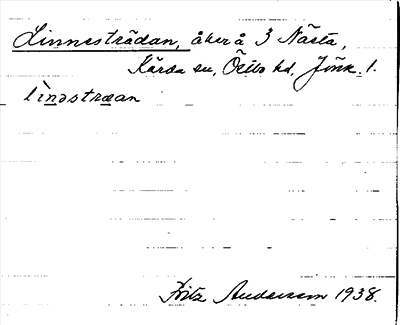 Linnesträdan, åker å 3 Nästa,
Kärda sn, Östbo hd, Jönk. l.
lìnəstræan
Fritz Andersson 1938.